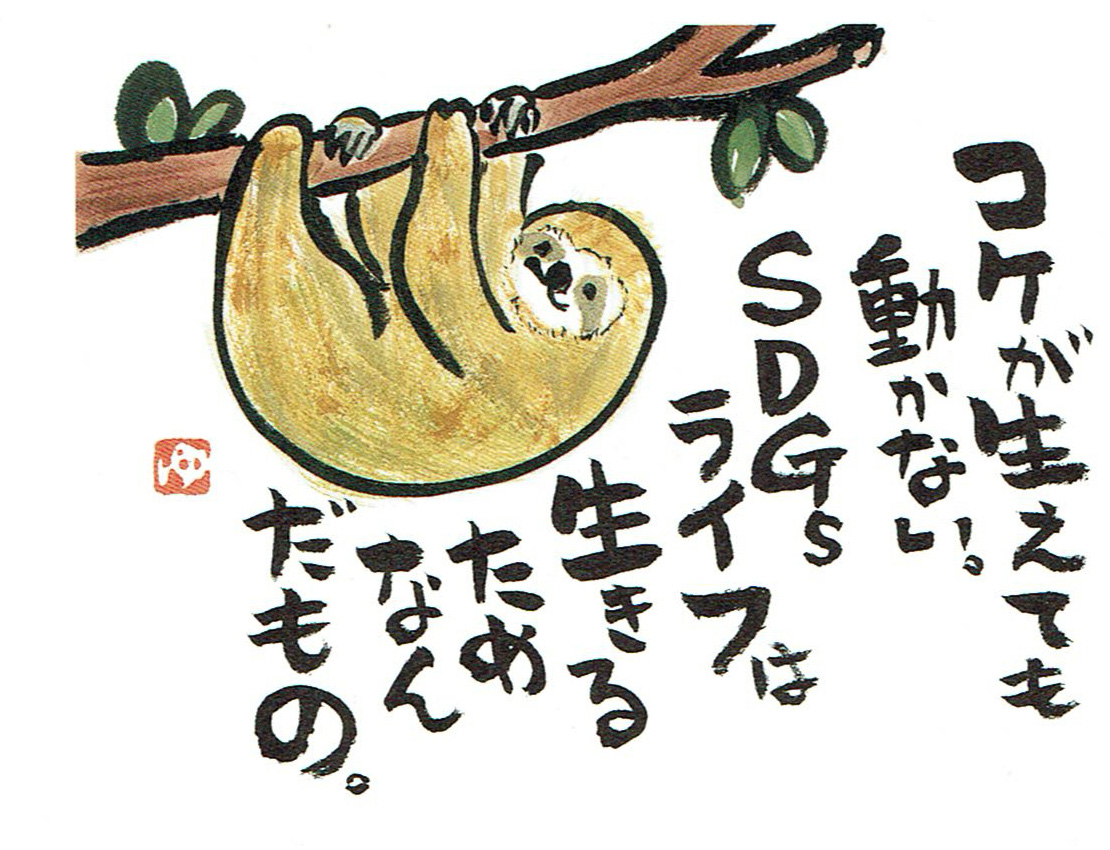 コケが生えても
動かない。
SDGs
ライフは
生きる
ため
なん
だもの。